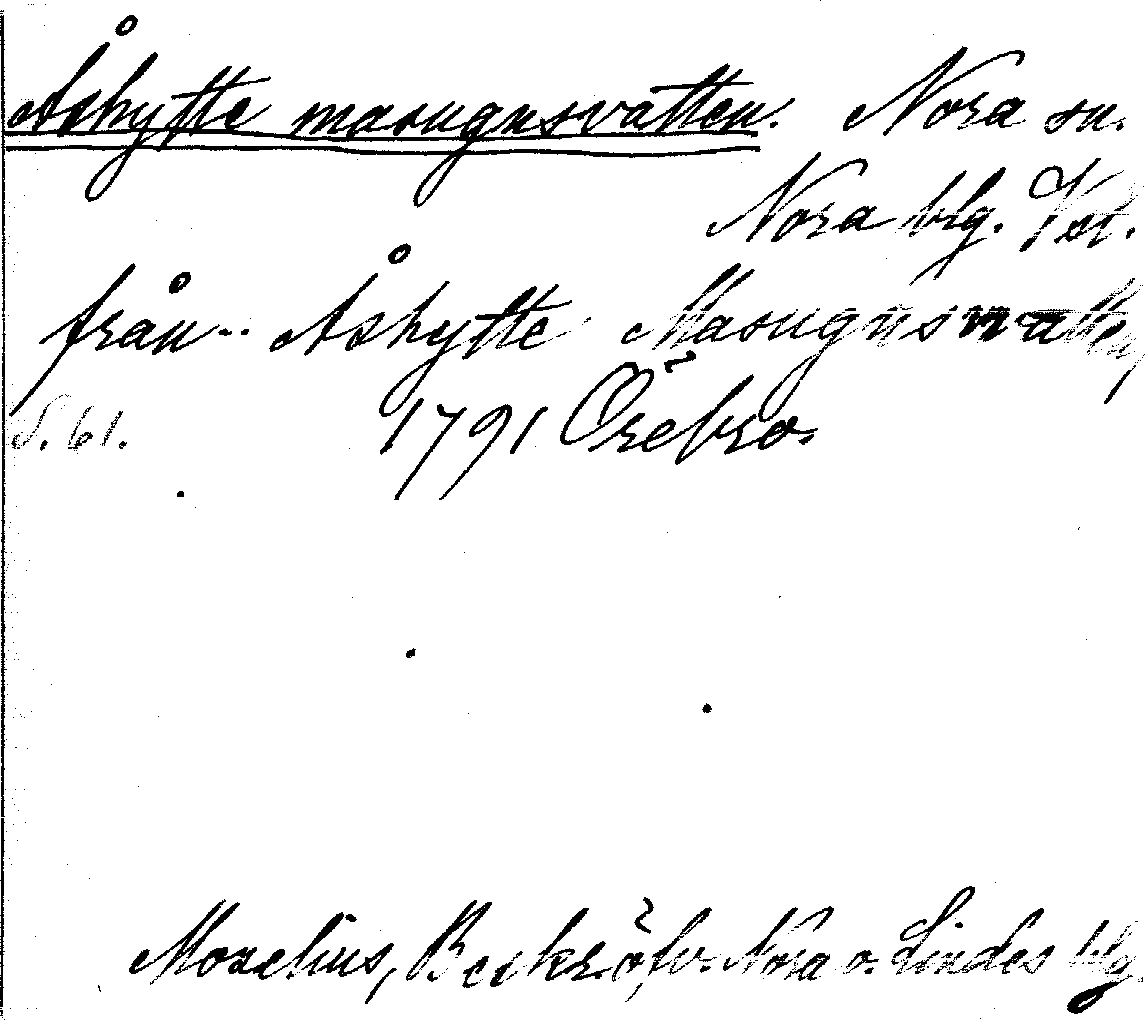 Åshytte masugnsvatten. Nora sn.
Nora blg. Vstl.
från.. Åshytte Masugnsvatten,
S. 61. 1791 Örebro.
Morelius, Beskr. öfv. Nora o. Lindes blg.